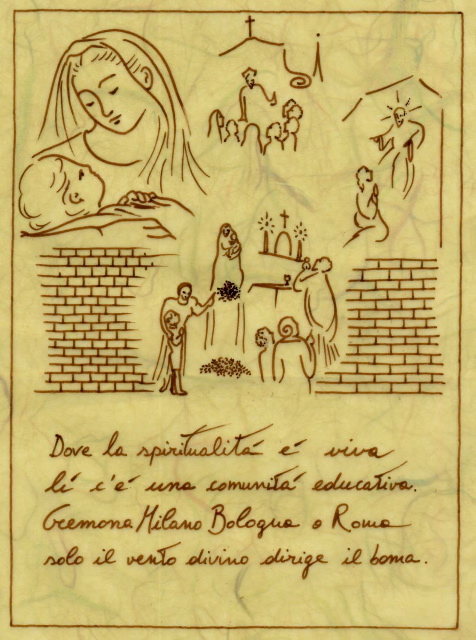 Dove la spiritualitá é viva
lí c'é una comunitá educativa.
Cremona Milano Bologna o Roma
solo il vento divino dirige il boma.